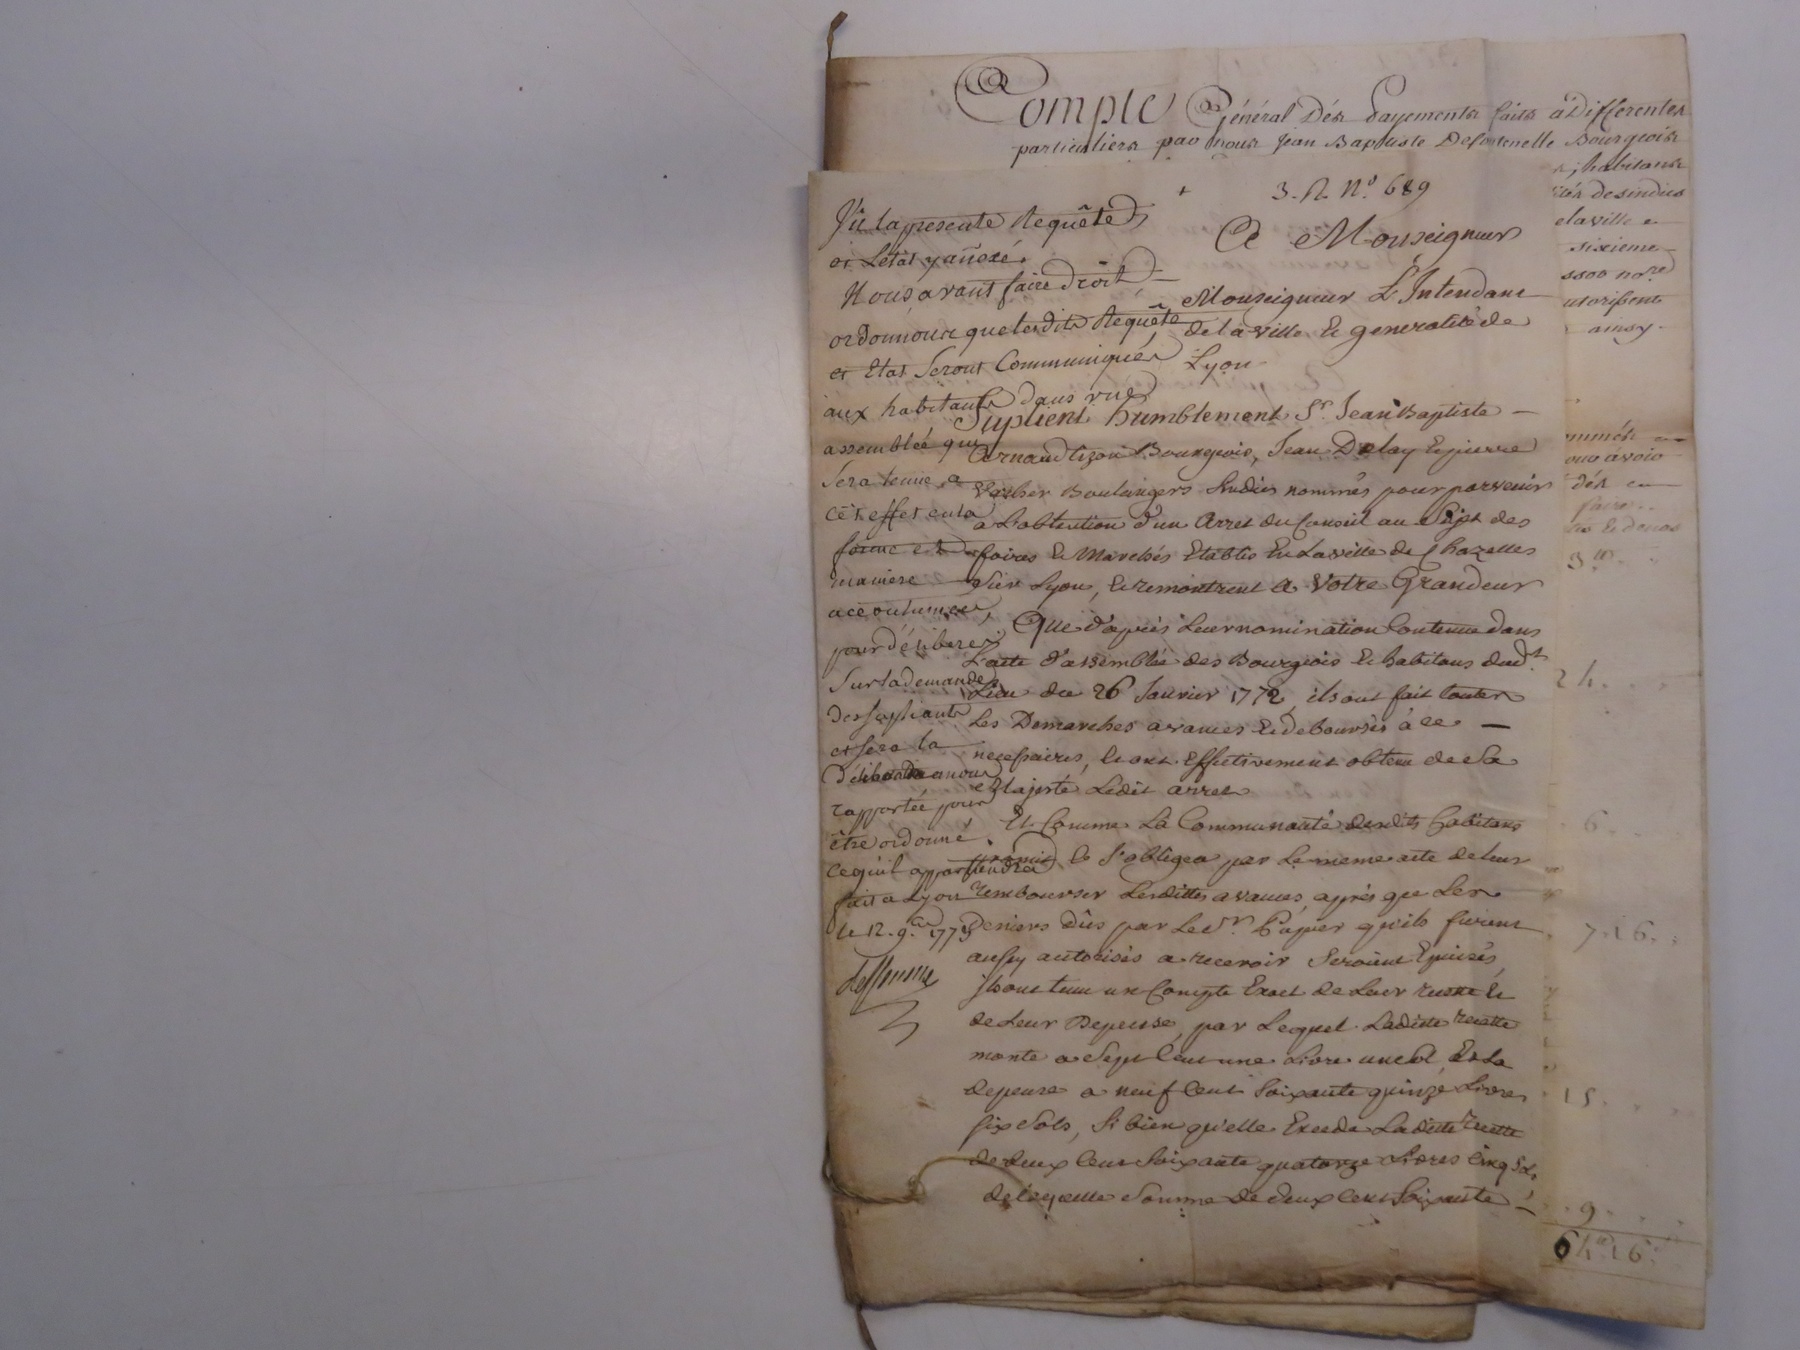 Compte Général Dés Payements faits à Differentes
particuliers par nous Jean Baptiste Defontenelle Bourgeois
habitans
scindics
dela ville
sixieme
5500 no.re
autorisent
ainsy.
3. R. N.o 689
A Monseigneur
Monseigneur L'Intendant
de la ville Et generalité de
Lyon
Vû la presente Requête
et L'état y añexé.
Nous avant faire droit
ordonnons que lesdits Requête
et Etat Seront Communiqués
aux habitants dans une
assemblée qui
Sera tenue a
cet effet en la
forme et
maniere
accoutumée,
pour déliberer
Sur la demande
des supliants
et sera la
déliberation a nous
rapportée pour
être ordonné
ce qu'il appartiendra
fait a Lyon
le 12. 9.bre 1773
Suplient humblement S.r Jean Baptiste
Arnaud Bourgeois, Jean Delay Et pierre
Boulangers Sindics nommés pour parvenir
a L'obtention d'un Arret du Conseil au Sujet des
foires Et Marchés Etablis En La ville de Chazelles
Sur Lyon, Et remontrent A Votre Grandeur
Que d'après Leur nomination Contenue dans
L'acte d'assemblée des Bourgeois Et habitans dud.t
Lieu du 26 Janvier 1772, ils ont fait toutes
Les Demarches avances Et deboursés à ce
necessaires, Et ont Effectivement obtenu de Sa
Majesté Ledit arret
Et Comme La Communauté desdits habitans
promit Et S'obligea par Le meme acte de leur
rembourser Lesdittes avances, aprés que Les
Deniers dûs par Le S.r qu'ils furent
aussy autorisés a recevoir Seroient Epuisés,
ils ont tenu un Compte Exact de Leur recette Et
de Leur Depense, par Lequel Laditte recette
monte a Sept Cent une Livre un Sol, Et La
depense a neuf Cent Soixante quinze Livres
six Sols, Si bien qu'elle Excede Laditte recette
de deux Cent Soixante quatorze Livres Cinq Sols,
de laquelle Somme de deux Cent Soixante
24.
6.
7. 16.
15.
9.
64. 16.